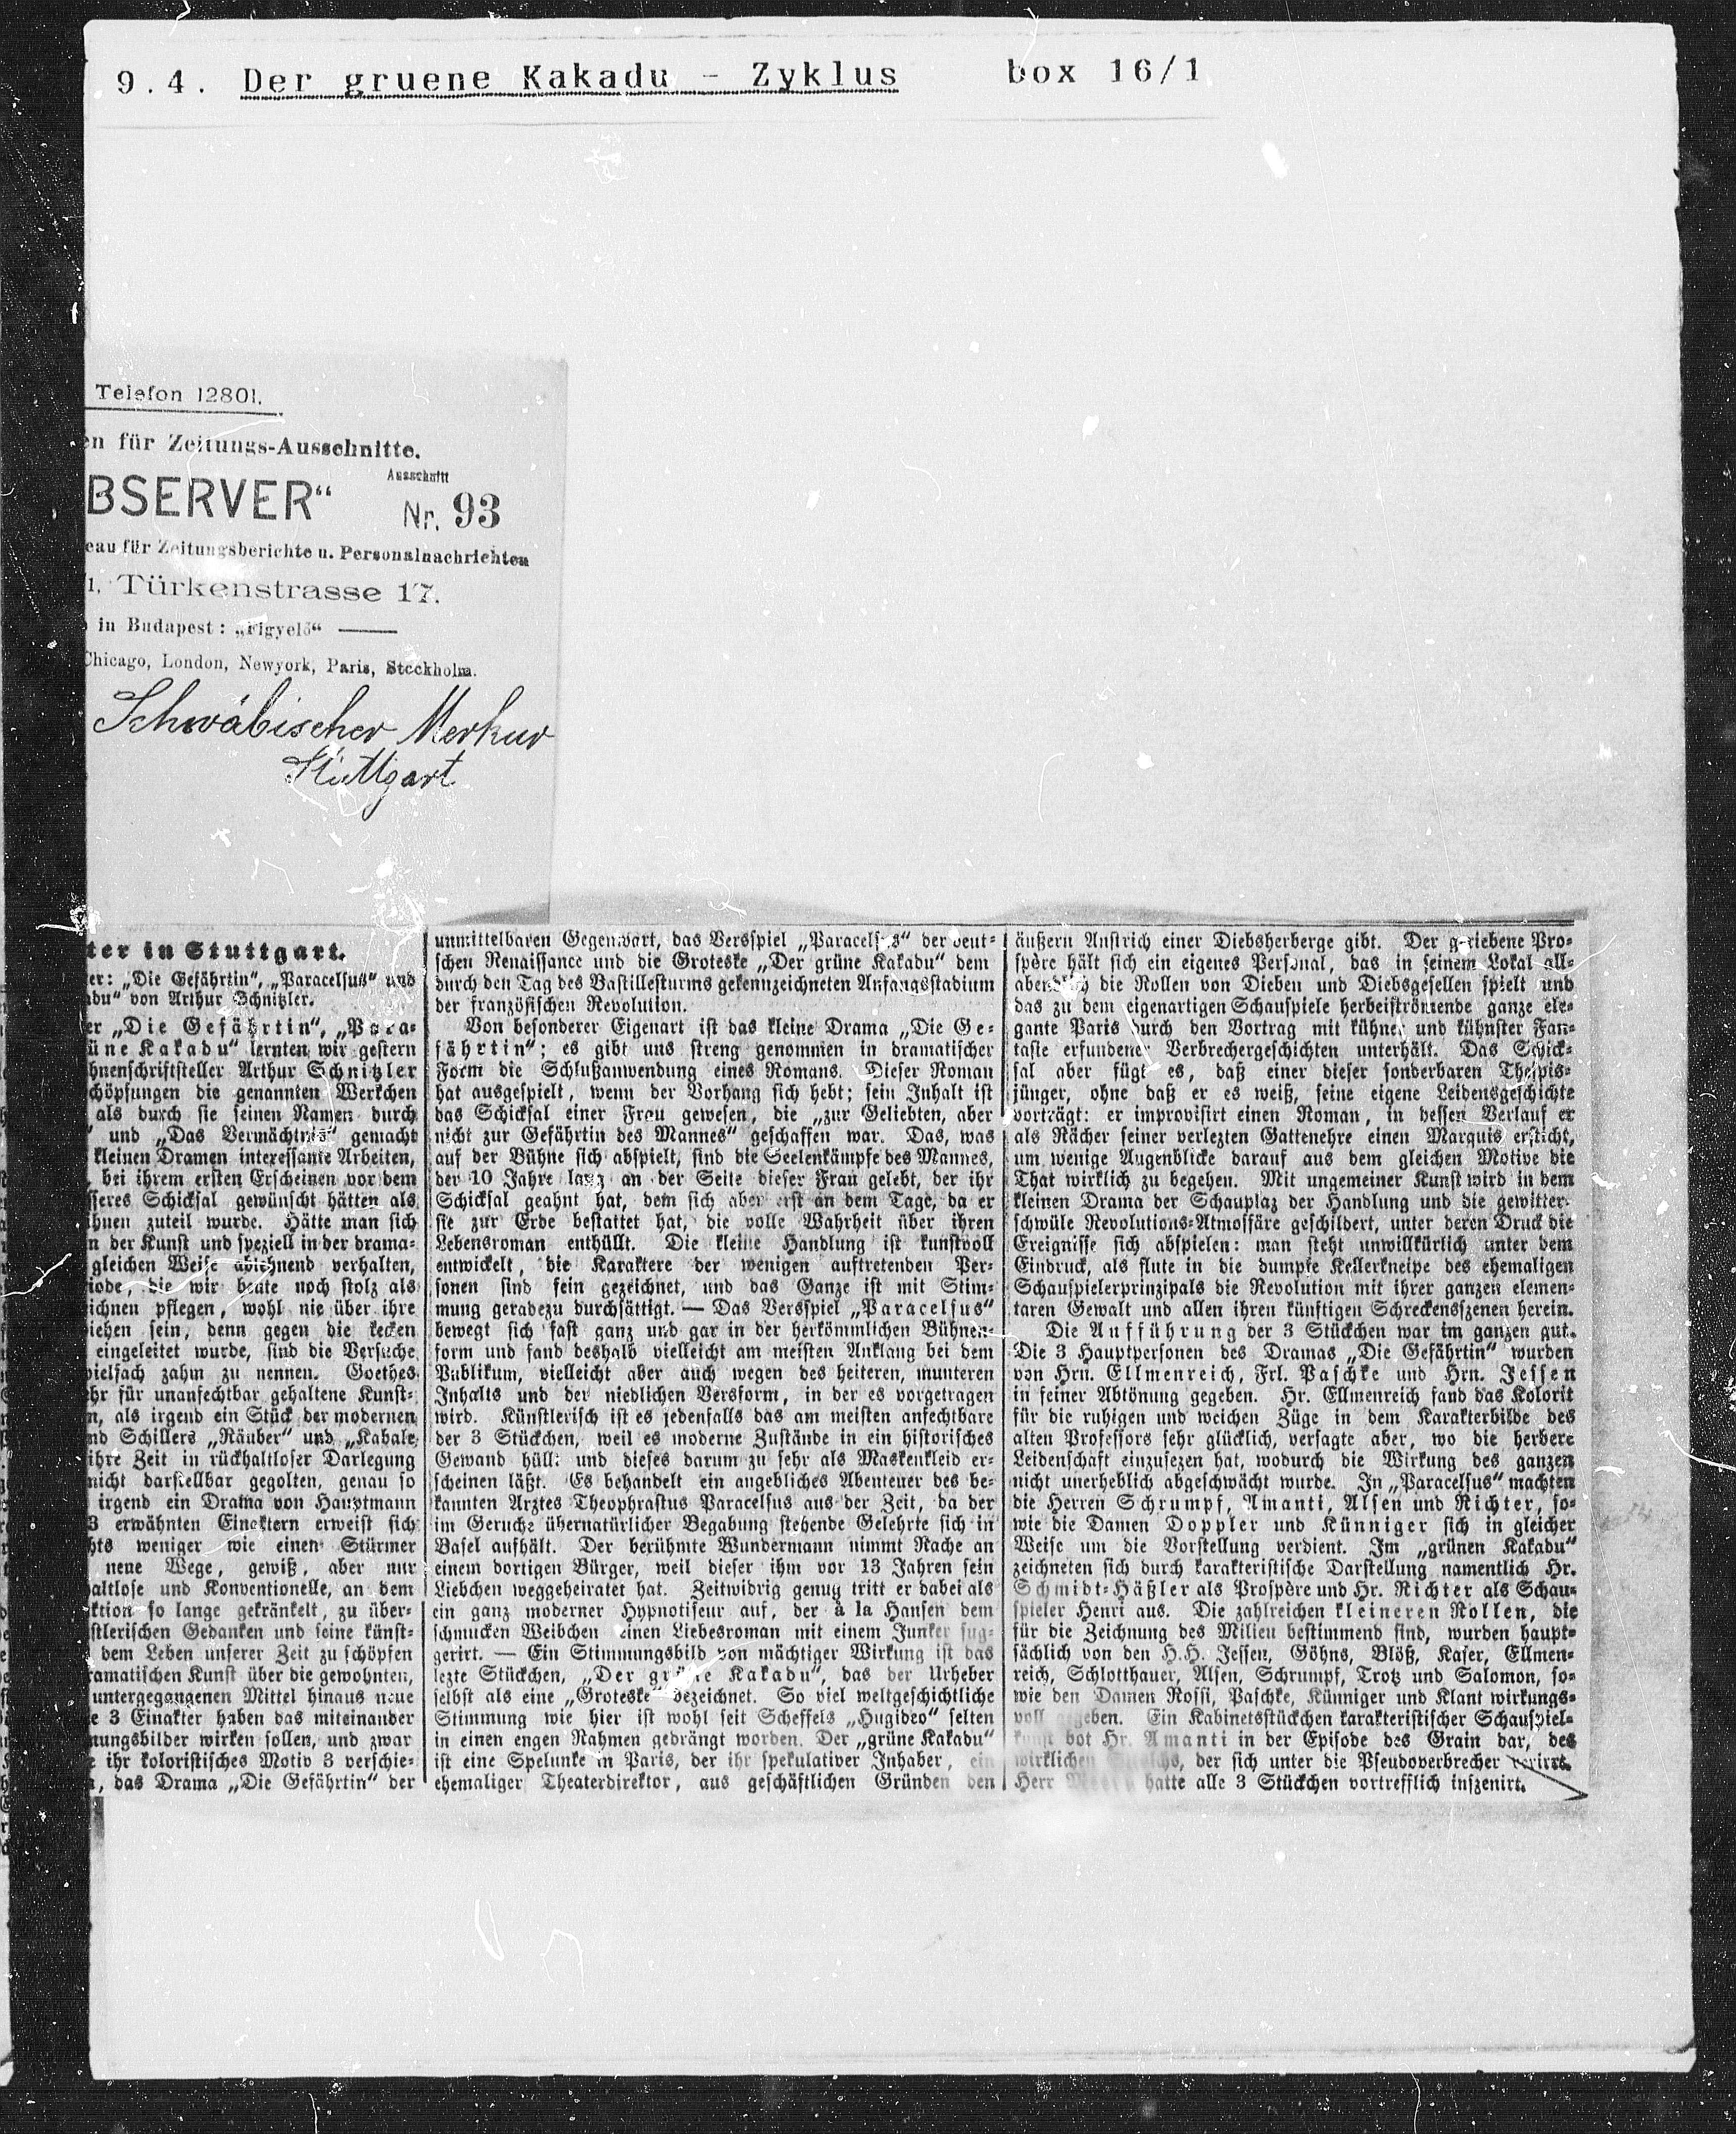 9.4. Der gruene Kakadu - Zyklus box 16/1
Telefon 12801.
en für Zeitungs-Ausschnitte.
BSERVER“ Ausschnitt Nr. 93
eau für Zeitungsberichte u. Personalnachrichten
1, Türkenstrasse 17.
in Budapest: „Figyelő“ ——
Chicago, London, Newyork, Paris, Stockholm.
Schwäbischer Merkur
Stuttgart
ter in Stuttgart.
er: „Die Gefährtin“, „Paracelsus“ und
adu“ von Arthur Schnitzler.
er „Die Gefährtin“, „Para-
üne Kakadu“ lernten wir gestern
hnenschriftsteller Arthur Schnitzler
chöpfungen die genannten Werkchen
als durch sie seinen Namen durch
“ und „Das Vermächtnis“ gemacht
kleinen Dramen interessante Arbeiten,
, bei ihrem ersten Erscheinen vor dem
sseres Schicksal gewünscht hätten als
ihnen zuteil wurde. Hätte man sich
n der Kunst und speziell in der drama-
gleichen Weise ablehnend verhalten,
iode, die wir heute noch stolz als
ichnen pflegen, wohl nie über ihre
iehen sein, denn gegen die kecken
eingeleitet wurde, sind die Versuche
vielfach zahm zu nennen. Goethes
hr für unanfechtbar gehaltene Kunst-
n, als irgend ein Stück der modernen
nd Schillers „Räuber“ und „Kabale
ihre Zeit in rückhaltloser Darlegung
nicht darstellbar gegolten, genau so
irgend ein Drama von Hauptmann
3 erwähnten Einaktern erweist sich
hts weniger wie einen Stürmer
neue Wege, gewiß, aber nur
altlose und Konventionelle, an dem
ktion so lange gekränkelt, zu über-
stlerischen Gedanken und seine künst-
dem Leben unserer Zeit zu schöpfen
ramatischen Kunst über die gewohnten,
untergegangenen Mittel hinaus neue
e 3 Einakter haben das miteinander
mungsbilder wirken sollen, und zwar
e ihr koloristisches Motiv 3 verschie-
n, das Drama „Die Gefährtin“ der
unmittelbaren Gegenwart, das Versspiel „Paracelsus“ der deut-
schen Renaissance und die Groteske „Der grüne Kakadu“ dem
durch den Tag des Bastillesturms gekennzeichneten Anfangsstadium
der französischen Revolution.
Von besonderer Eigenart ist das kleine Drama „Die Ge-
fährtin“; es gibt uns streng genommen in dramatischer
Form die Schlußanwendung eines Romans. Dieser Roman
hat ausgespielt, wenn der Vorhang sich hebt; sein Inhalt ist
das Schicksal einer Frau gewesen, die „zur Geliebten, aber
nicht zur Gefährtin des Mannes“ geschaffen war. Das, was
auf der Bühne sich abspielt, sind die Seelenkämpfe des Mannes,
der 10 Jahre lang an der Seite dieser Frau gelebt, der ihr
Schicksal geahnt hat, dem sich aber erst an dem Tage, da er
sie zur Erde bestattet hat, die volle Wahrheit über ihren
Lebensroman enthüllt. Die kleine Handlung ist kunstvoll
entwickelt, die Karaktere der wenigen auftretenden Per-
sonen sind fein gezeichnet, und das Ganze ist mit Stim-
mung geradezu durchsättigt. — Das Versspiel „Paracelsus“
bewegt sich fast ganz und gar in der herkömmlichen Bühnen-
form und fand deshalb vielleicht am meisten Anklang bei dem
Publikum, vielleicht aber auch wegen des heiteren, munteren
Inhalts und der niedlichen Versform, in der es vorgetragen
wird. Künstlerisch ist es jedenfalls das am meisten anfechtbare
der 3 Stückchen, weil es moderne Zustände in ein historisches
Gewand hüllt und dieses darum zu sehr als Maskenkleid er-
scheinen läßt. Es behandelt ein angebliches Abenteuer des be-
kannten Arztes Theophrastus Paracelsus aus der Zeit, da der
im Geruche übernatürlicher Begabung stehende Gelehrte sich in
Basel aufhält. Der berühmte Wundermann nimmt Rache an
einem dortigen Bürger, weil dieser ihm vor 13 Jahren sein
Liebchen weggeheiratet hat. Zeitwidrig genug tritt er dabei als
ein ganz moderner Hypnotiseur auf, der à la Hansen dem
schmucken Weibchen einen Liebesroman mit einem Junker sug-
gerirt. — Ein Stimmungsbild von mächtiger Wirkung ist das
lezte Stückchen, „Der grüne Kakadu“, das der Urheber
selbst als eine „Groteske“ bezeichnet. So viel weltgeschichtliche
Stimmung wie hier ist wohl seit Scheffels „Hugideo“ selten
in einen engen Rahmen gedrängt worden. Der „grüne Kakadu“
ist eine Spelunke in Paris, der ihr spekulativer Inhaber, ein
ehemaliger Theaterdirektor, aus geschäftlichen Gründen den
äußern Anstrich einer Diebsherberge gibt. Der geriebene Pro-
spère hält sich ein eigenes Personal, das in seinem Lokal all-
abendlich die Rollen von Dieben und Diebsgesellen spielt und
das zu dem eigenartigen Schauspiele herbeiströmende ganze ele-
gante Paris durch den Vortrag mit kühner und kühnster Fan-
tasie erfundener Verbrechergeschichten unterhält. Das Schick-
sal aber fügt es, daß einer dieser sonderbaren Thespis-
jünger, ohne daß er es weiß, seine eigene Leidensgeschichte
vorträgt: er improvisirt einen Roman, in dessen Verlauf er
als Rächer seiner verlezten Gattenehre einen Marquis ersticht,
um wenige Augenblicke darauf aus dem gleichen Motive die
That wirklich zu begehen. Mit ungemeiner Kunst wird in dem
kleinen Drama der Schauplaz der Handlung und die gewitter-
schwüle Revolutions-Atmosfäre geschildert, unter deren Druck die
Ereignisse sich abspielen: man steht unwillkürlich unter dem
Eindruck, als flute in die dumpfe Kellerkneipe des ehemaligen
Schauspielerprinzipals die Revolution mit ihrer ganzen elemen-
taren Gewalt und allen ihren künftigen Schreckensszenen herein.
Die Aufführung der 3 Stückchen war im ganzen gut.
Die 3 Hauptpersonen des Dramas „Die Gefährtin“ wurden
von Hrn. Ellmenreich, Frl. Paschke und Hrn. Jessen
in feiner Abtönung gegeben. Hr. Ellmenreich fand das Kolorit
für die ruhigen und weichen Züge in dem Karakterbilde des
alten Professors sehr glücklich, versagte aber, wo die herbere
Leidenschaft einzusezen hat, wodurch die Wirkung des ganzen
nicht unerheblich abgeschwächt wurde. In „Paracelsus“ machten
die Herren Schrumpf, Amanti, Alsen und Richter, so-
wie die Damen Doppler und Künniger sich in gleicher
Weise um die Vorstellung verdient. Im „grünen Kakadu“
zeichneten sich durch karakteristische Darstellung namentlich Hr.
Schmidt-Häßler als Prospère und Hr. Richter als Schau-
spieler Henri aus. Die zahlreichen kleineren Rollen, die
für die Zeichnung des Milieu bestimmend sind, wurden haupt-
sächlich von den H.H. Jessen, Göhns, Blöß, Kaser, Ellmen-
reich, Schlotthauer, Alsen, Schrumpf, Trotz und Salomon, so-
wie den Damen Rossi, Paschke, Künniger und Klant wirkungs-
voll gegeben. Ein Kabinetsstückchen karakteristischer Schauspiel-
kunst bot Hr. Amanti in der Episode des Grain dar, des
wirklichen der sich unter die Pseudoverbrecher verirrt.
Herr hatte alle 3 Stückchen vortrefflich inszenirt.